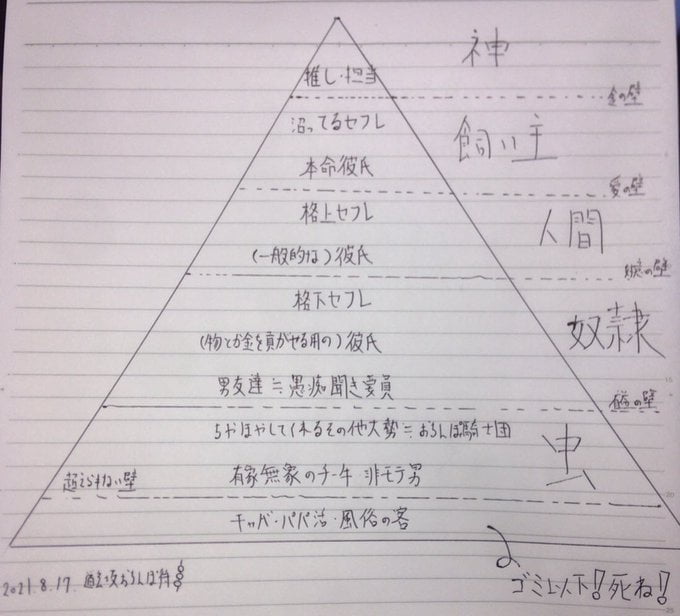 神
推し・担当
金の壁
沼ってるセフレ
飼い主
本命彼氏
愛の壁
格上セフレ
人間
(一般的な)彼氏
の壁
格下セフレ
奴隷
(物とか金を貢がせる用の)彼氏
男友達≒愚痴聞き要員
の壁
ちやほやしてくれるその他大勢≒おちんぽ騎士団
虫
超えられない壁
有象無象のチー牛 非モテ男
キャバ・パパ活・風俗の客
ゴミ以下!死ね!
2021.8.17. 道玄坂おちんぽ